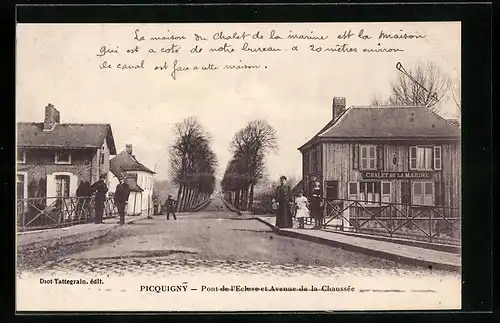 La maison du Chalet de la marine est la maison
qui est a coté de notre bureau. a 20 mètres environ
le canal est face a cette maison.
CHALET DE LA MARINE
Diot Tattegrain, édit.
PICQUIGNY — Pont de l'Ecluse et Avenue de la Chaussée